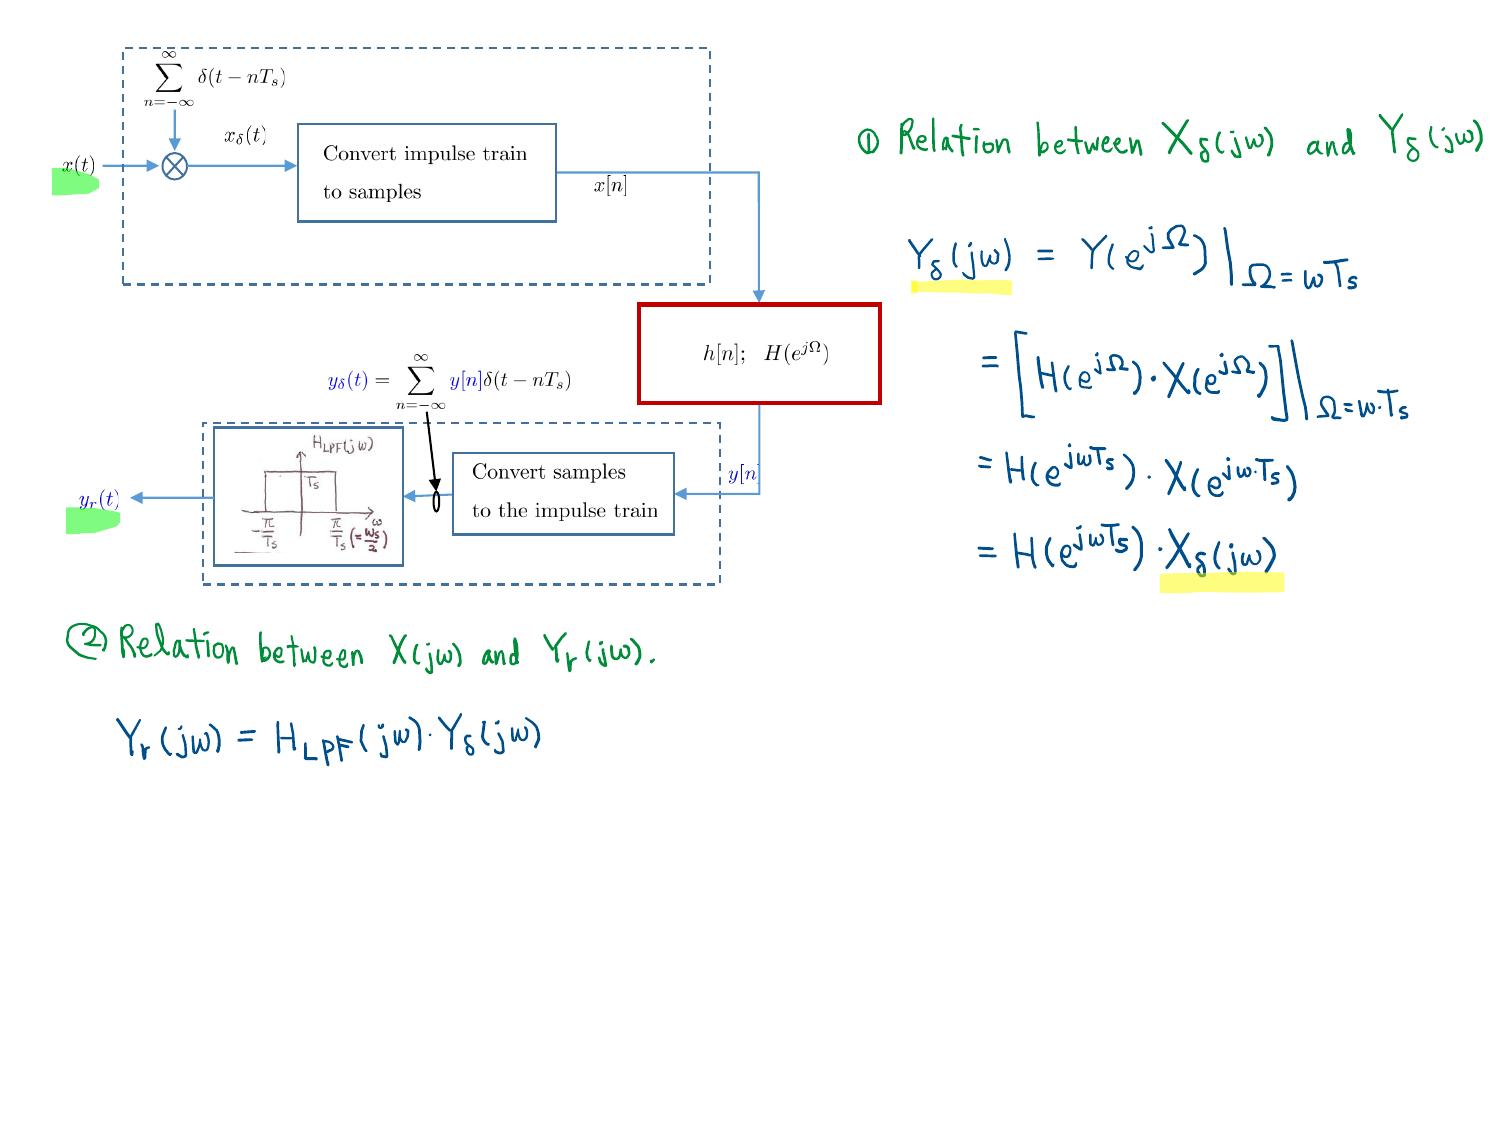 ∞
∑ δ(t − nTₛ)
n=−∞
x_δ(t)
x(t)
Convert impulse train
to samples
x[n]
h[n]; H(e^{jΩ})
∞
y_δ(t) = ∑ y[n]δ(t − nTₛ)
n=−∞
H_{LPF}(jω)
Tₛ
ω
−π/Tₛ
π/Tₛ (=ωₛ/2)
Convert samples
to the impulse train
y[n]
y_r(t)
① Relation between X_δ(jω) and Y_δ(jω)
Y_δ(jω) = Y(e^{jΩ})|_{Ω=ωTₛ}
= [H(e^{jΩ})·X(e^{jΩ})]|_{Ω=ω·Tₛ}
= H(e^{jωTₛ}) · X(e^{jω·Tₛ})
= H(e^{jωTₛ}) · X_δ(jω)
② Relation between X(jω) and Y_r(jω).
Y_r(jω) = H_{LPF}(jω)·Y_δ(jω)